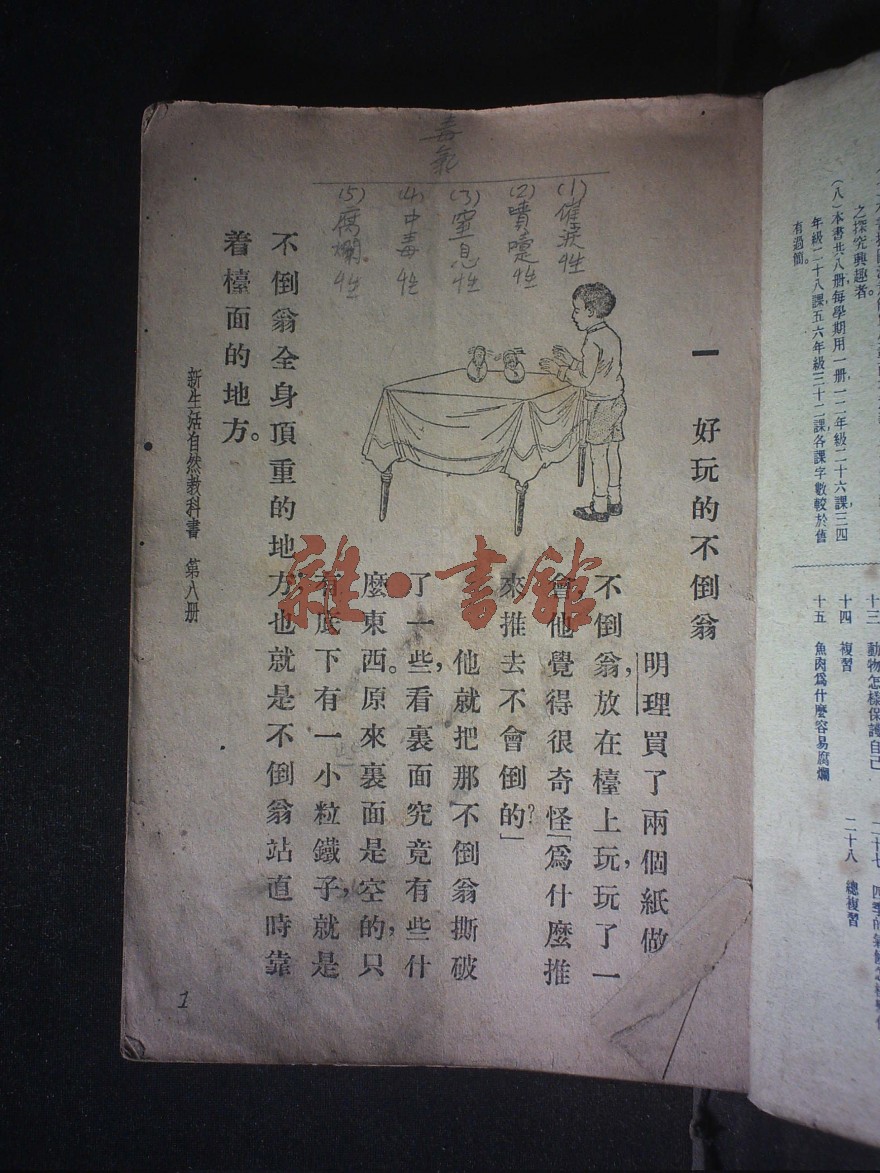 之探究興趣者。
（八）本書共八册，每學期用一册，一二年級二十六課，三四
年級二十八課，五六年級三十二課，各課字數較於舊
有過簡。
十三　動物怎樣保護自己
十四　複習
十五　魚肉爲什麽容易腐爛
二十八　總複習
一　好玩的不倒翁
明理買了兩個紙做
不倒翁，放在檯上玩，玩了一
會，他覺得很奇怪「爲什麽推
來推去不會倒的？」
他就把那不倒翁撕破
了一些，看裏面究竟有些什
麽東西。原來裏面是空的，只
有底下有一小粒鐵子，就是
不倒翁全身頂重的地方，也就是不倒翁站直時靠
着檯面的地方。
新生活自然教科書　第八册
毒氣
(1)催淚性
(2)噴嚏性
(3)窒息性
(4)中毒性
(5)腐爛性
1
雜·書館